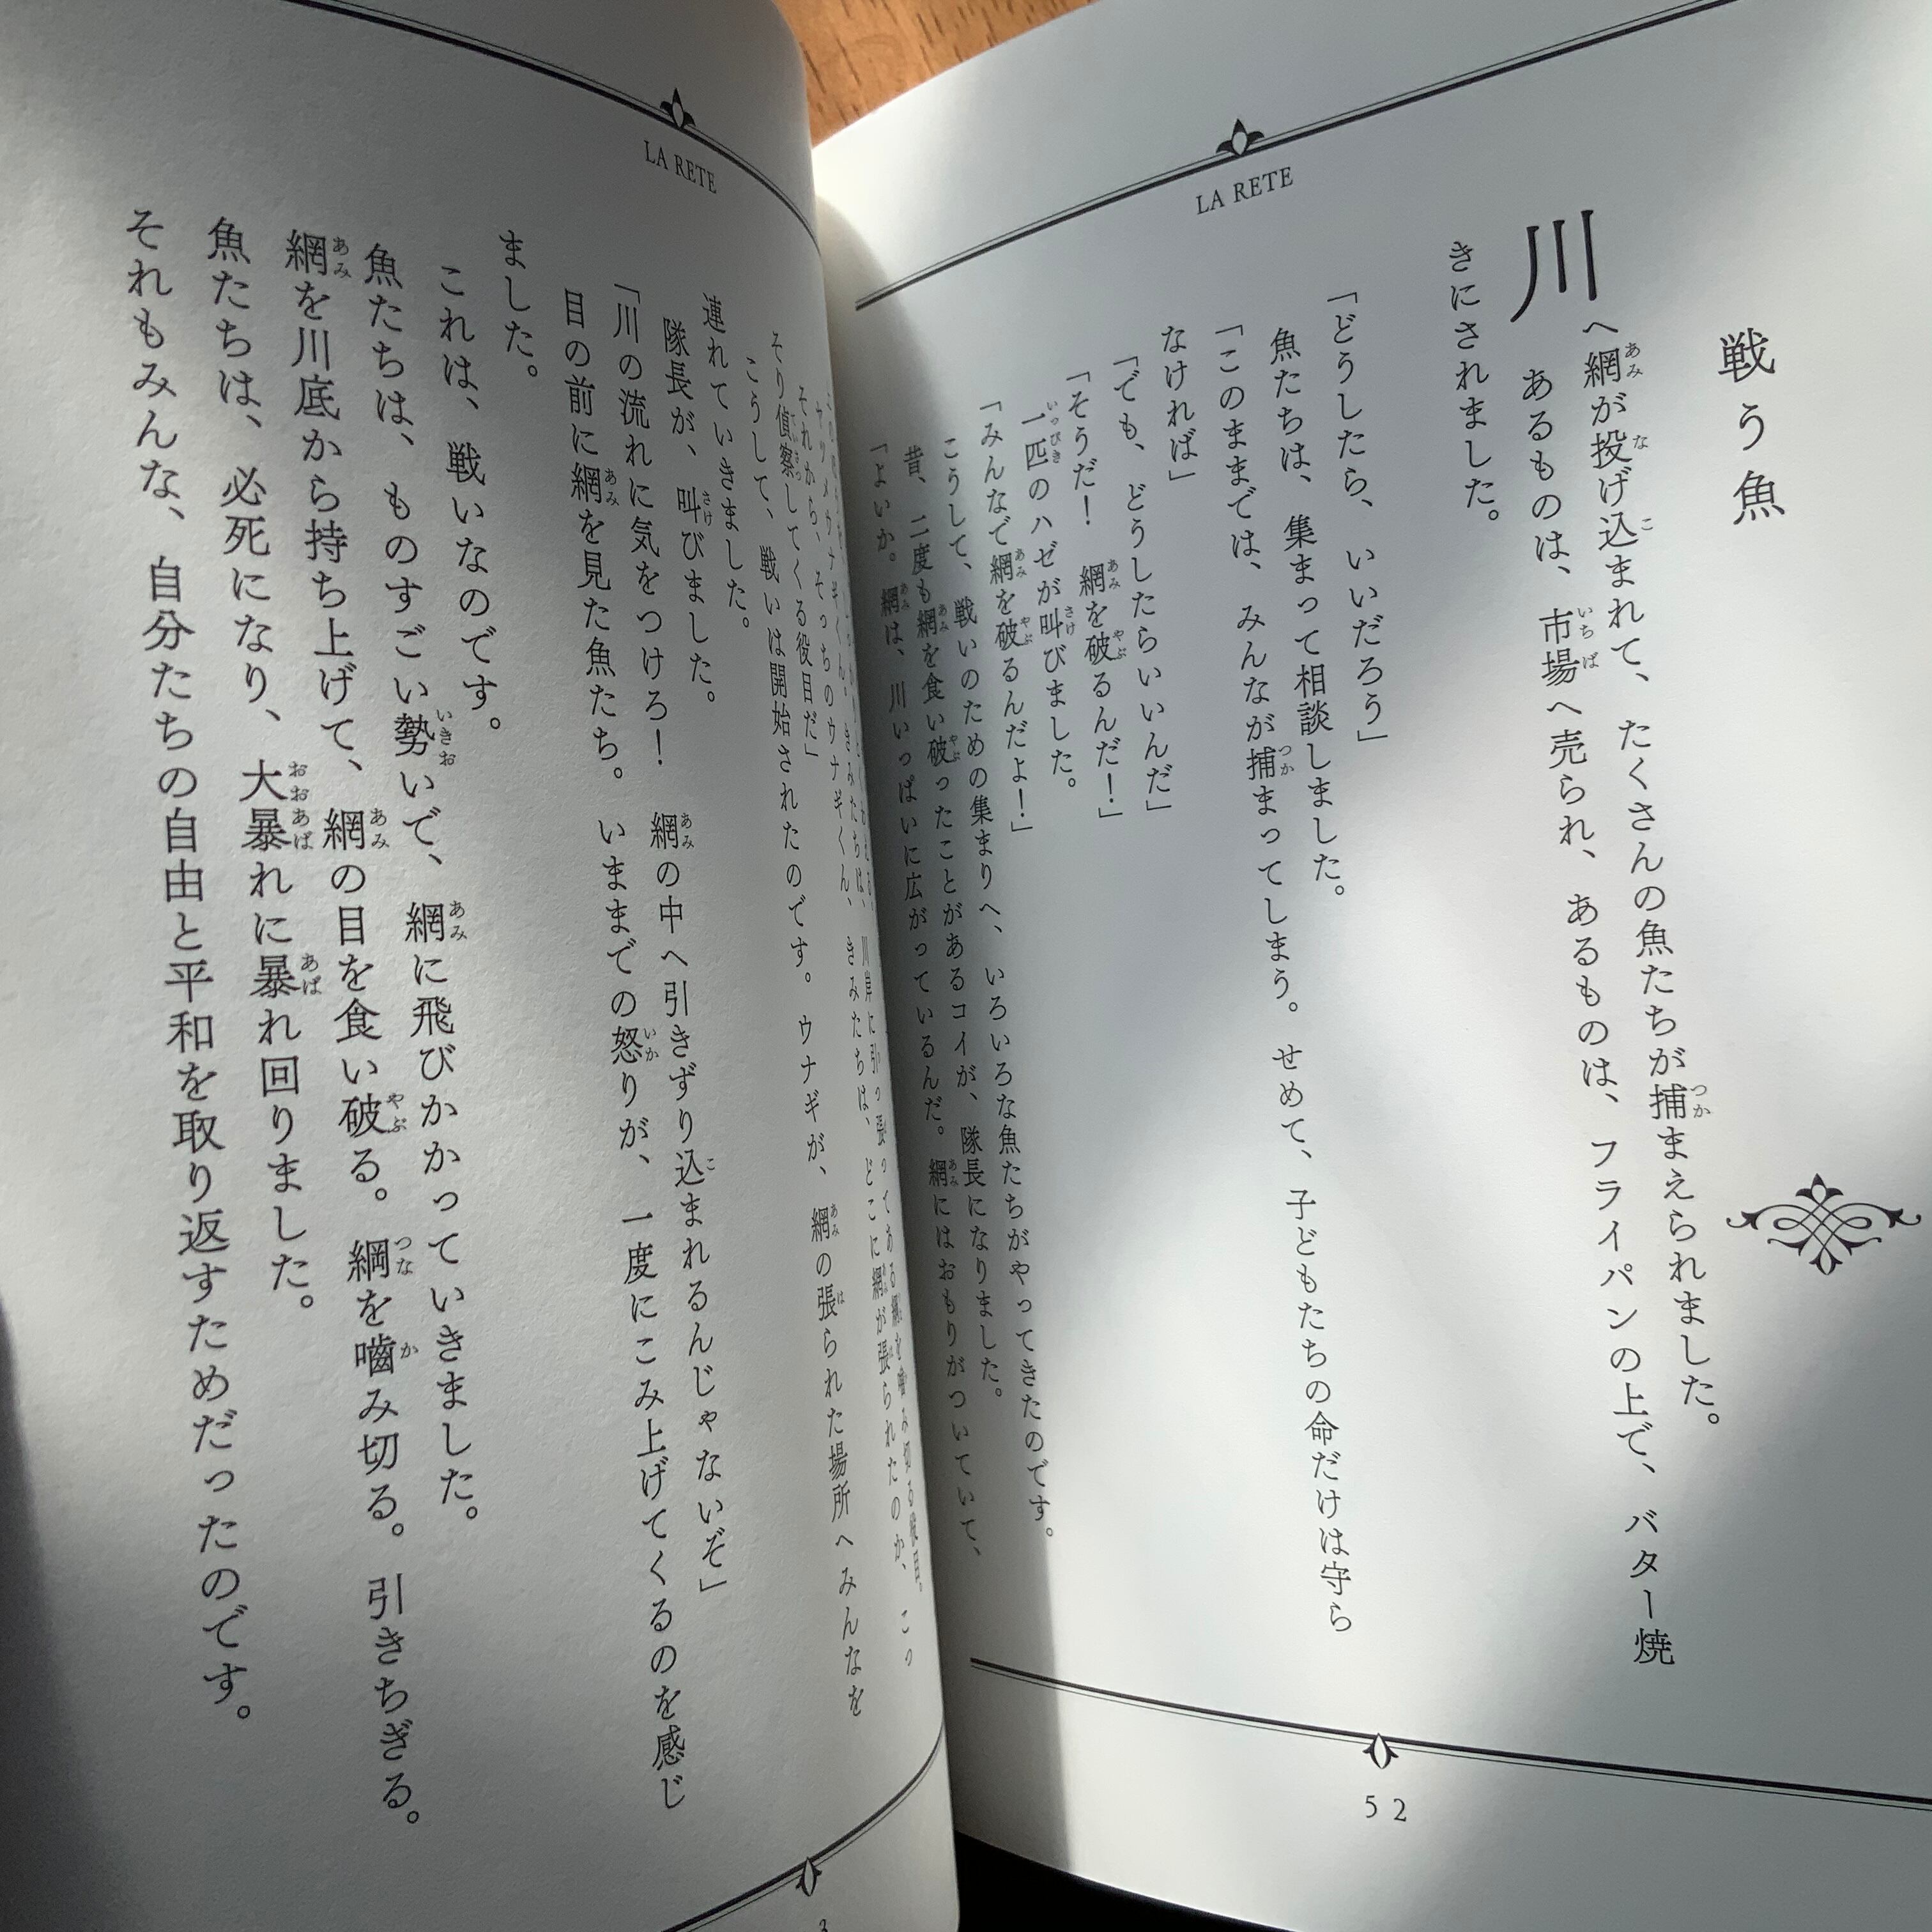 LA RETE
戦う魚
川へ網が投げ込まれて、たくさんの魚たちが捕まえられました。
あるものは、市場へ売られ、あるものは、フライパンの上で、バター焼
きにされました。
「どうしたら、いいだろう」
魚たちは、集まって相談しました。
「このままでは、みんなが捕まってしまう。せめて、子どもたちの命だけは守ら
なければ」
「でも、どうしたらいいんだ」
「そうだ！　網を破るんだ！」
一匹のハゼが叫びました。
「みんなで網を破るんだよ！」
こうして、戦いのための集まりへ、いろいろな魚たちがやってきたのです。
昔、二度も網を食い破ったことがあるコイが、隊長になりました。
「よいか。網は、川いっぱいに広がっているんだ。網にはおもりがついていて、
52
LA RETE
川岸に引っ張ってある綱を噛み切る役目。こっ
きみたちは、どこに網が張られたのか、
それから、そっちのウナギくん、
そり偵察してくる役目だ」
こうして、戦いは開始されたのです。ウナギが、網の張られた場所へみんなを
連れていきました。
隊長が、叫びました。
「川の流れに気をつけろ！　網の中へ引きずり込まれるんじゃないぞ」
目の前に網を見た魚たち。いままでの怒りが、一度にこみ上げてくるのを感じ
ました。
これは、戦いなのです。
魚たちは、ものすごい勢いで、網に飛びかかっていきました。
網を川底から持ち上げて、網の目を食い破る。綱を噛み切る。引きちぎる。
魚たちは、必死になり、大暴れに暴れ回りました。
それもみんな、自分たちの自由と平和を取り返すためだったのです。
3